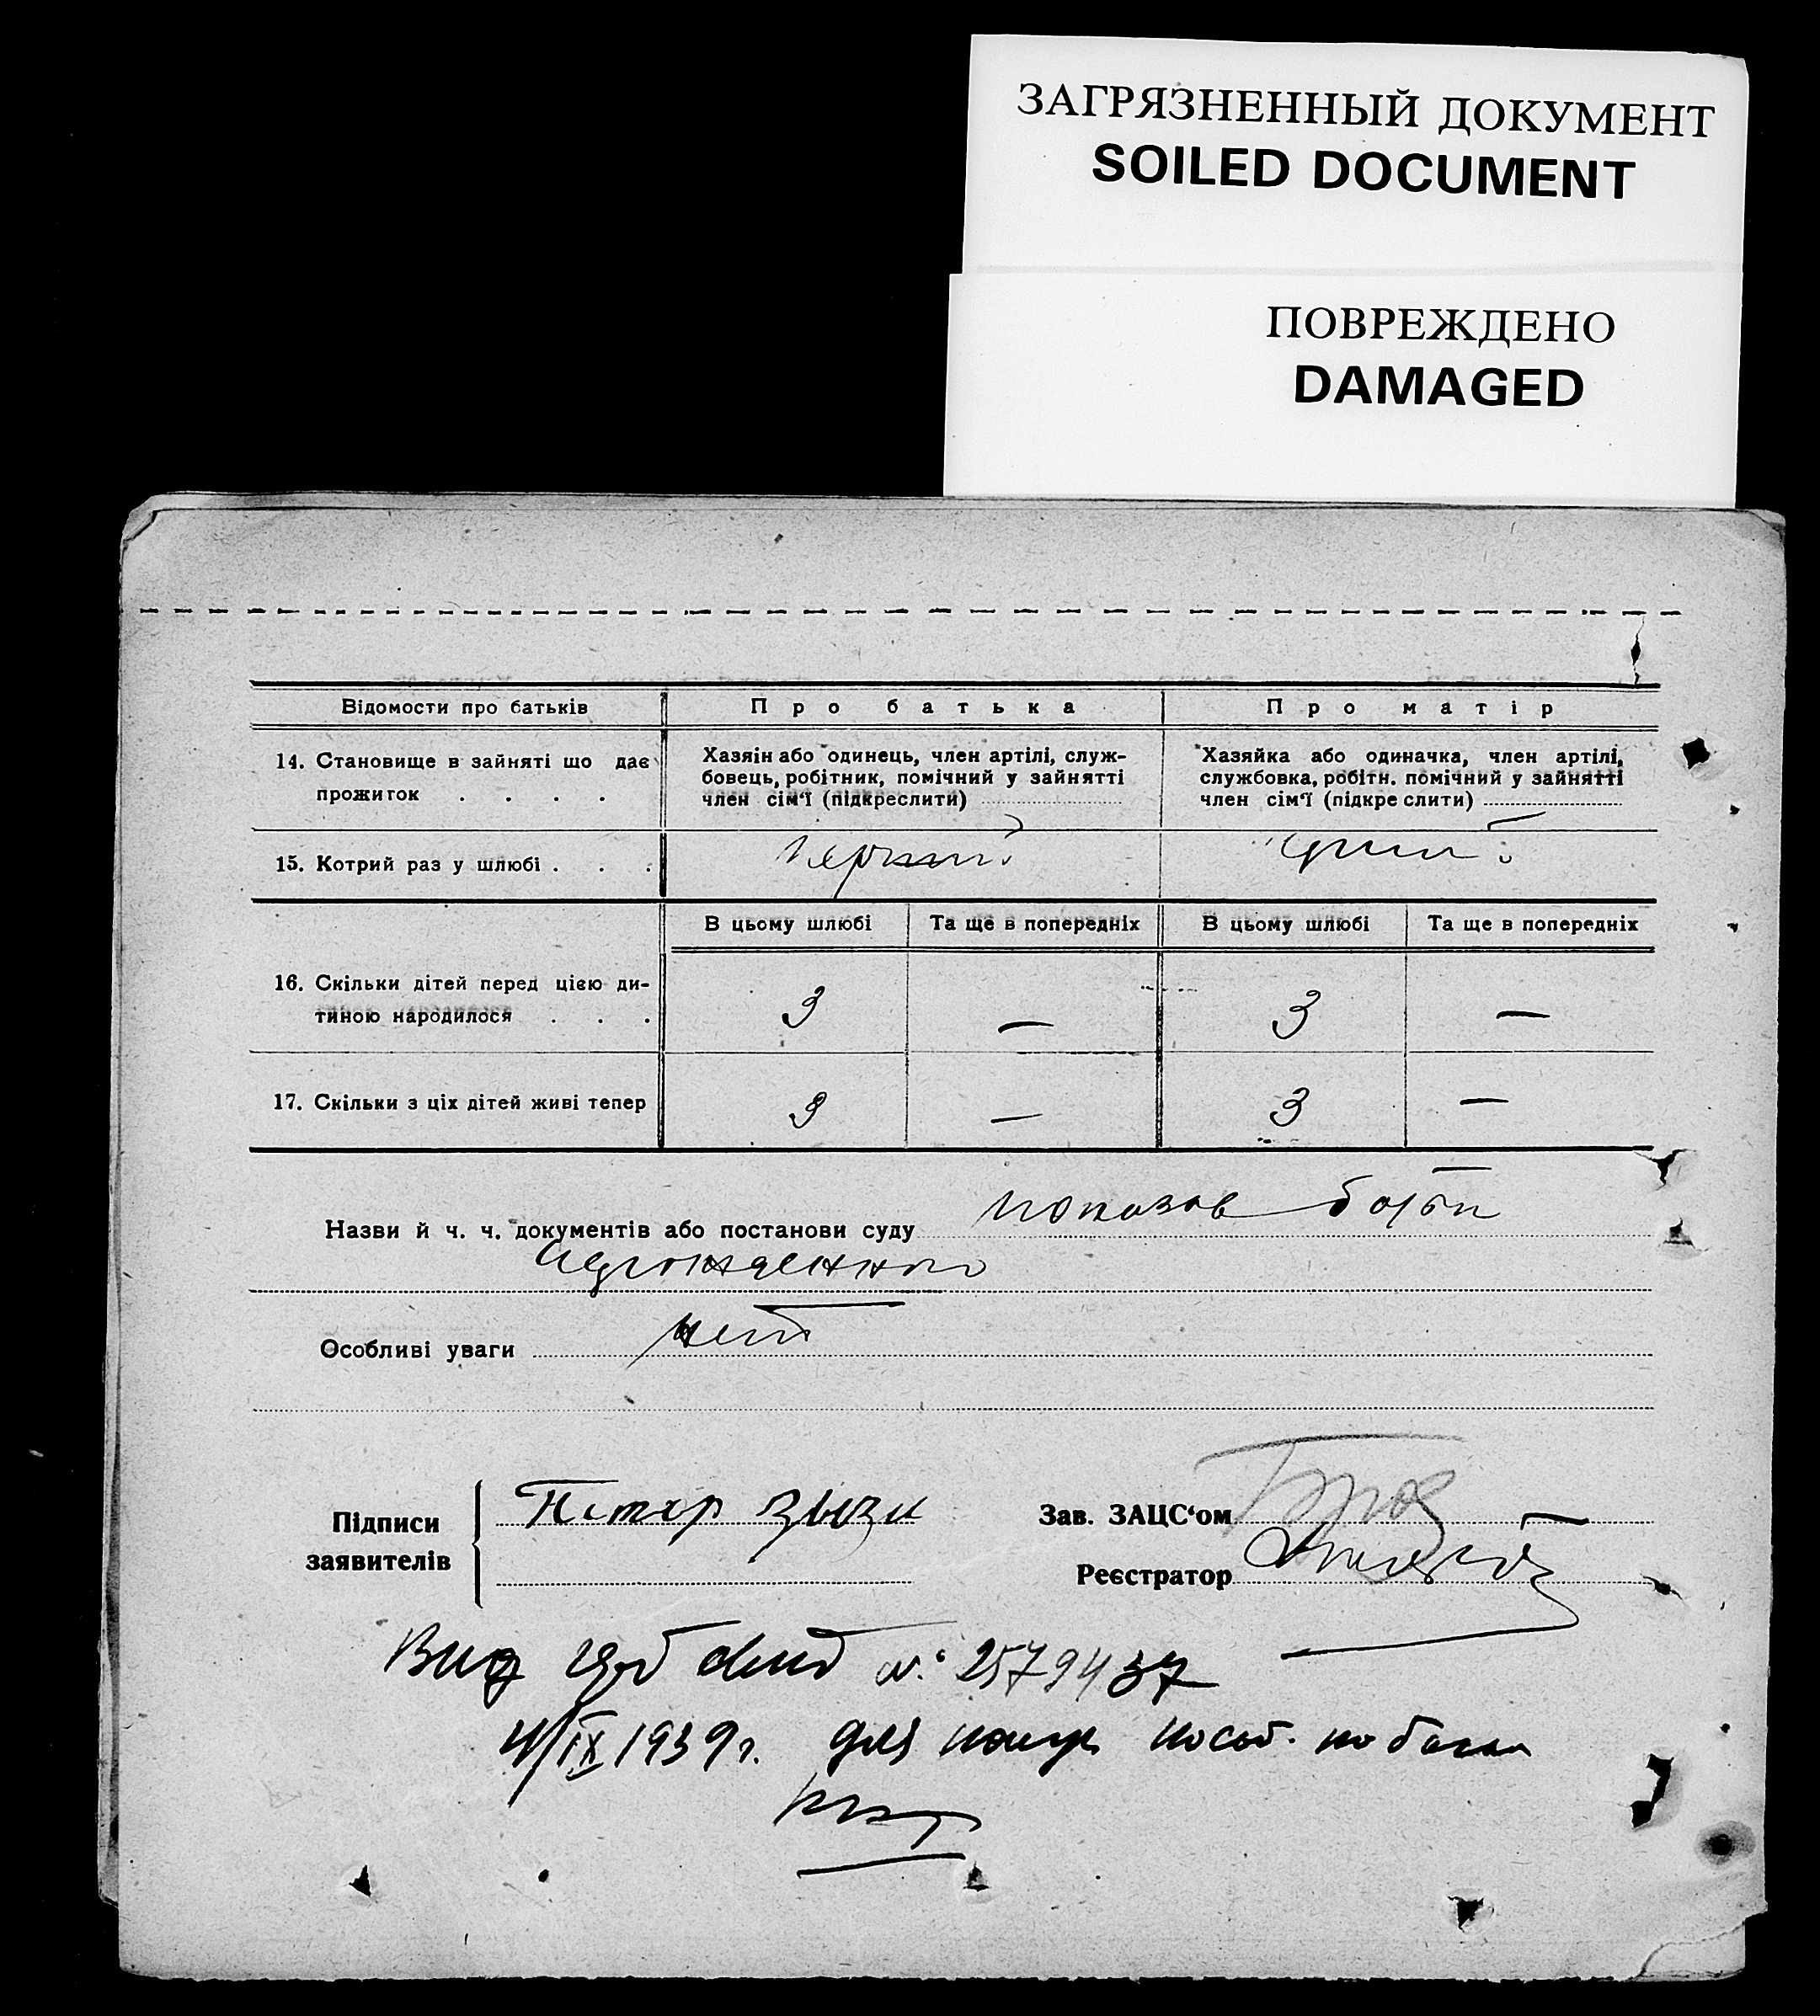 ЗАГРЯЗНЕННЫЙ ДОКУМЕНТ
SOILED DOCUMENT
ПОВРЕЖДЕНО
DAMAGED
Відомости про батьків
Про батька
Про матір
14. Становище в зайняті що дає
прожиток . . . .
Хазяін або одинець, член артілі, служ-
бовець, робітник, помічний у зайнятті
член сім'ї (підкреслити)
Хазяйка або одиначка, член артілі,
службовка, робітн. помічний у зайнятті
член сім'ї (підкре слити)
15. Котрий раз у шлюбі . . .
Перший
В цьому шлюбі
Та ще в попередніх
В цьому шлюбі
Та ще в попередніх
16. Скільки дітей перед цією ди-
тиною народилося . . .
3
—
3
—
17. Скільки з ціх дітей живі тепер
3
—
3
—
Назви й ч. ч. документів або постанови суду
Особливі уваги
нет
Підписи
заявителів
Зав. ЗАЦС'ом
Реєстратор
№ 2579437
4/IX 1939 г. для